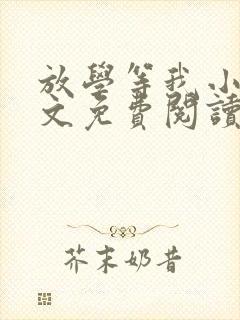 放學等我 小
文免費閱讀
芥末奶昔